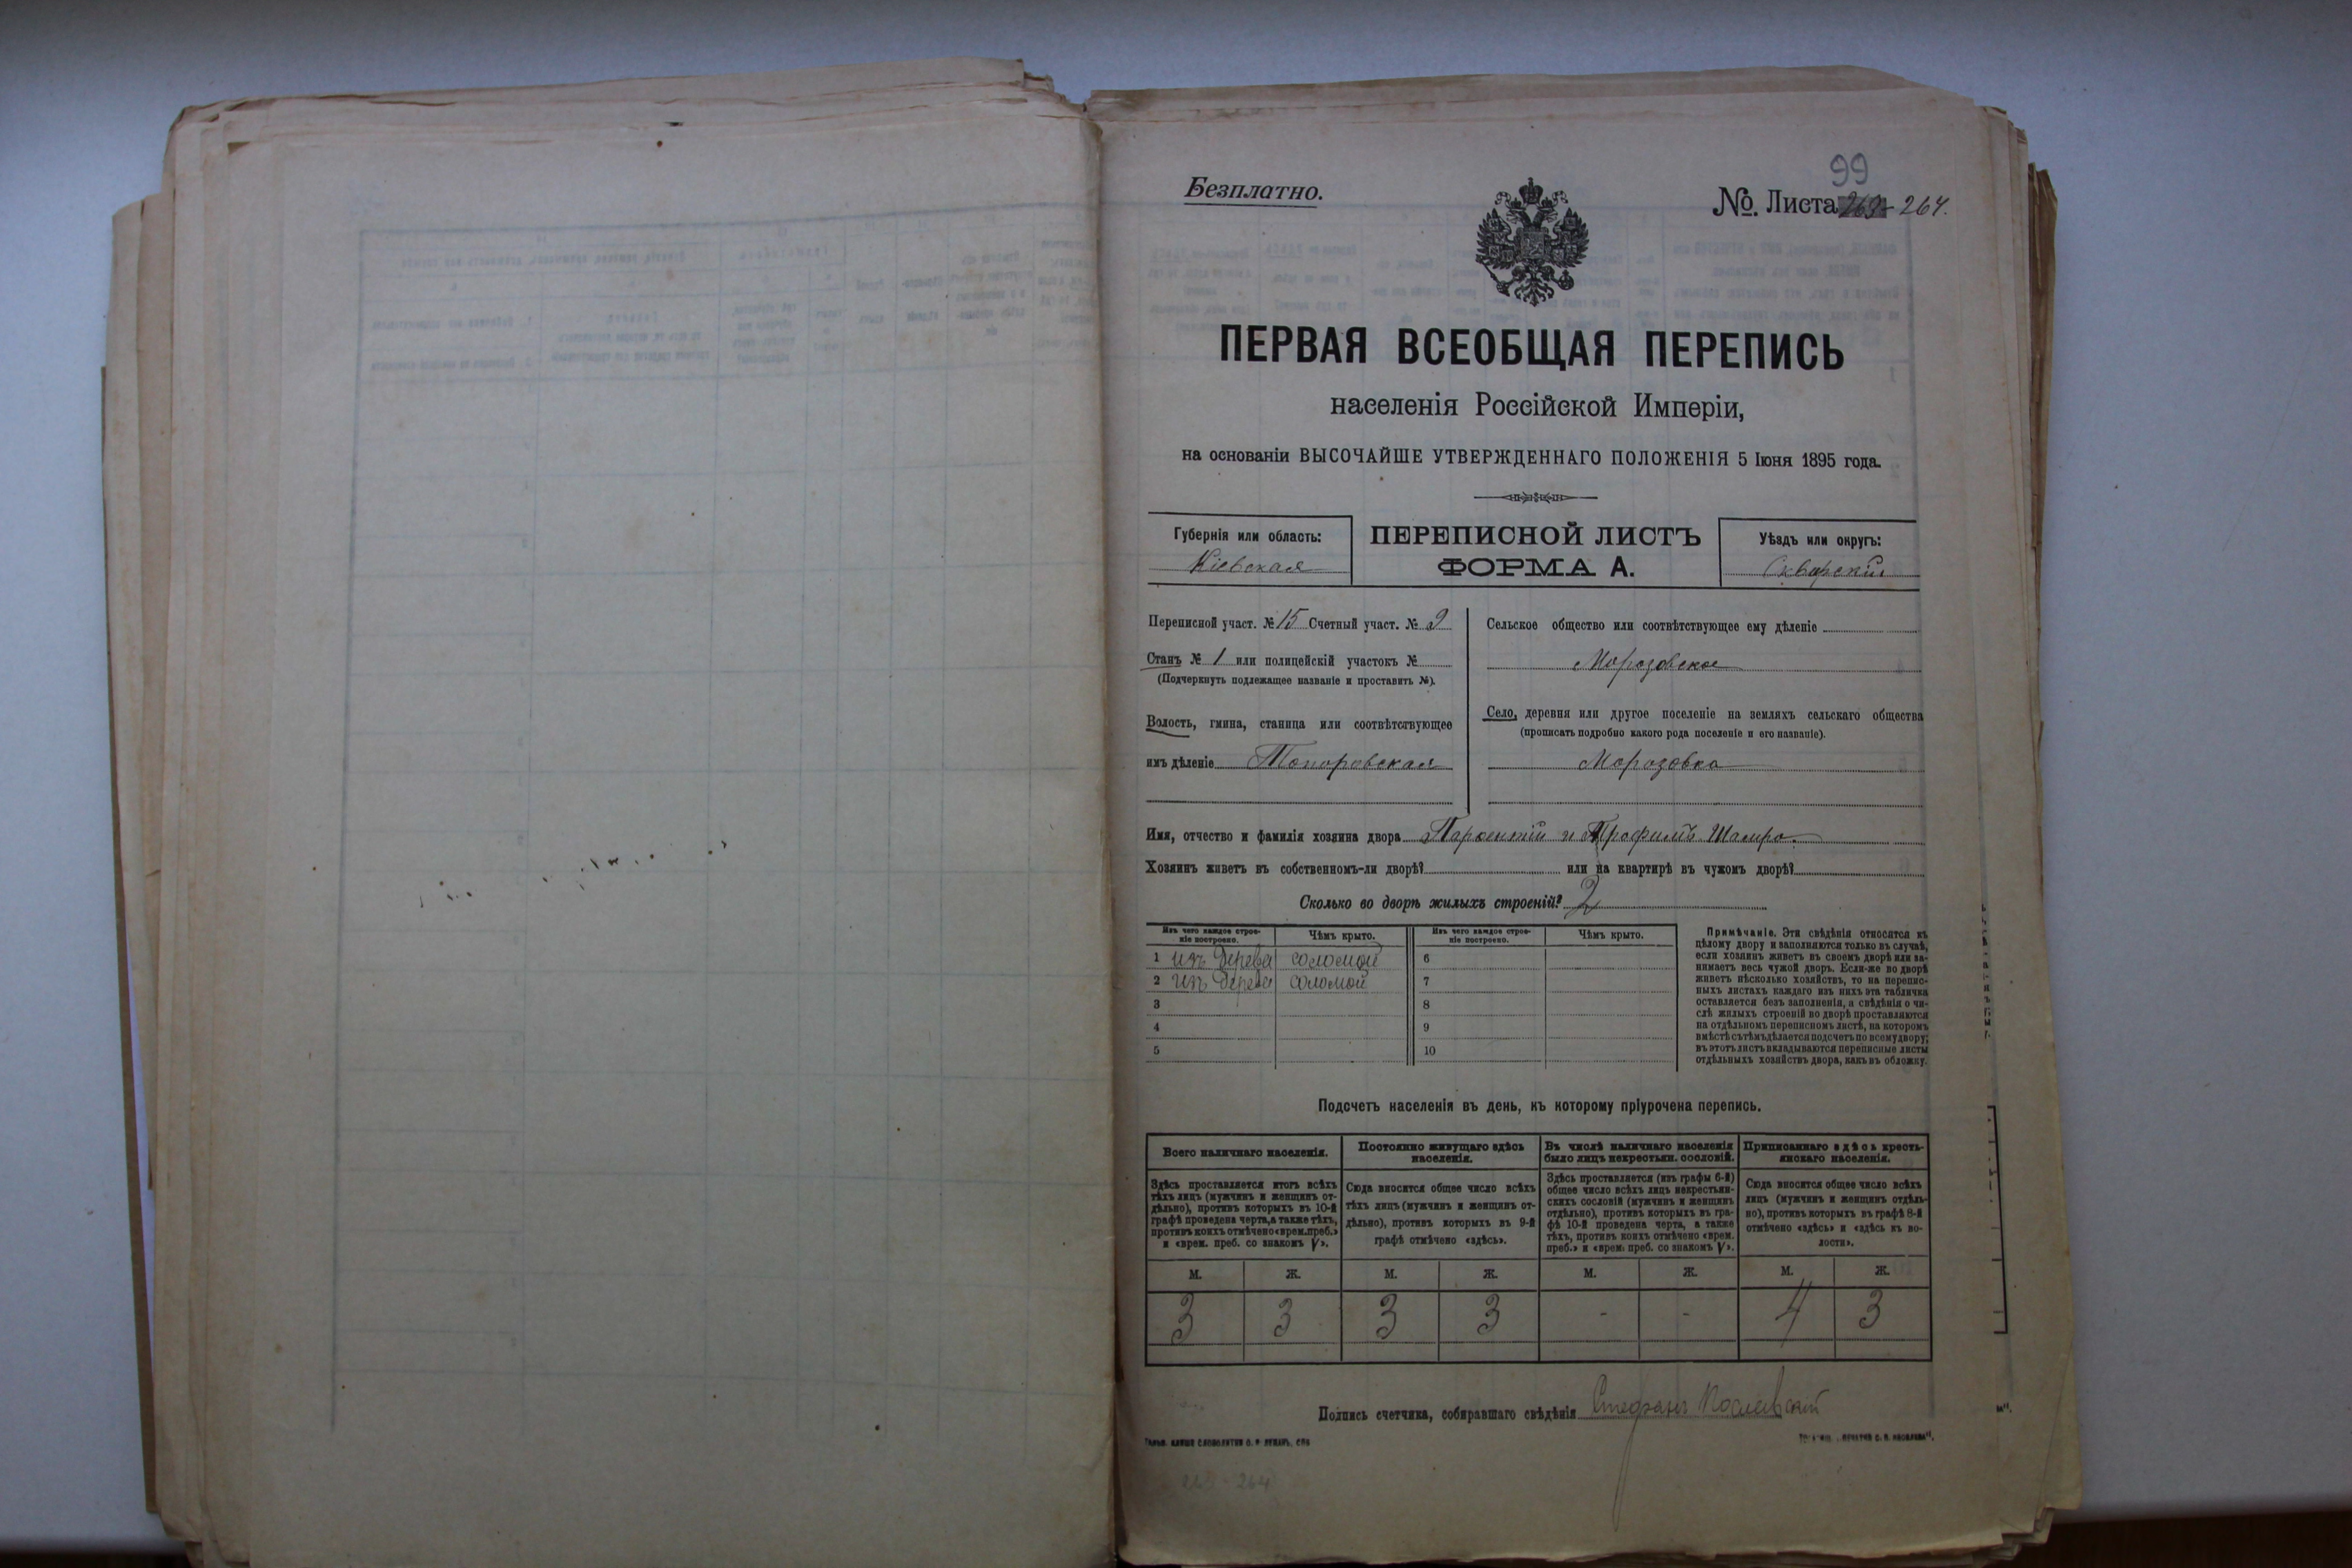 99
Безплатно.
№ Листа 263-264.
ПЕРВАЯ ВСЕОБЩАЯ ПЕРЕПИСЬ
населенія Россійской Имперіи,
на основаніи ВЫСОЧАЙШЕ УТВЕРЖДЕННАГО ПОЛОЖЕНІЯ 5 Іюня 1895 года.
Губернія или область:
Кіевская
ПЕРЕПИСНОЙ ЛИСТЪ
ФОРМА А.
Уѣздъ или округъ:
Сквирскій
Переписной участ. № 15 Счетный участ. № 9
Станъ № 1 или полицейскій участокъ №
(Подчеркнуть подлежащее названіе и проставить №).
Волость, гмина, станица или соотвѣтствующее
имъ дѣленіе Топоровская
Сельское общество или соотвѣтствующее ему дѣленіе
Морозовское
Село, деревня или другое поселеніе на земляхъ сельскаго общества
(прописать подробно какого рода поселеніе и его названіе).
Морозовка
Имя, отчество и фамилія хозяина двора и Трофимъ
Хозяинъ живетъ въ собственномъ-ли дворѣ? или на квартирѣ въ чужомъ дворѣ?
Сколько во дворѣ жилыхъ строеній? 2
Изъ чего каждое строе-
ніе построено.
Чѣмъ крыто.
Изъ чего каждое строе-
ніе построено.
Чѣмъ крыто.
1 изъ дерева соломой 6
2 изъ дерева соломой 7
3 8
4 9
5 10
Примѣчаніе. Эти свѣдѣнія относятся къ
цѣлому двору и заполняются только въ случаѣ,
если хозяинъ живетъ въ своемъ дворѣ или за-
нимаетъ весь чужой дворъ. Если-же во дворѣ
живетъ нѣсколько хозяйствъ, то на перепис-
ныхъ листахъ каждаго изъ нихъ эта табличка
оставляется безъ заполненія, а свѣдѣнія о чи-
слѣ жилыхъ строеній во дворѣ проставляются
на отдѣльномъ переписномъ листѣ, на которомъ
вмѣстѣ съ тѣмъ дѣлается подсчетъ по всему двору;
въ этотъ листъ вкладываются переписные листы
отдѣльныхъ хозяйствъ двора, какъ въ обложку.
Подсчетъ населенія въ день, къ которому пріурочена перепись.
Всего наличнаго населенія.
Постоянно живущаго здѣсь
населенія.
Въ числѣ наличнаго населенія
было лицъ некрестьян. сословій.
Приписаннаго здѣсь кресть-
янскаго населенія.
Здѣсь проставляется итогъ всѣхъ
тѣхъ лицъ (мужчинъ и женщинъ от-
дѣльно), противъ которыхъ въ 10-й
графѣ проведена черта, а также тѣхъ,
противъ коихъ отмѣчено «врем. преб.»
и «врем. преб. со знакомъ V».
Сюда вносится общее число всѣхъ
тѣхъ лицъ (мужчинъ и женщинъ от-
дѣльно), противъ которыхъ въ 9-й
графѣ отмѣчено «здѣсь».
Здѣсь проставляется (изъ графы 6-й)
общее число всѣхъ лицъ некрестьян-
скихъ сословій (мужчинъ и женщинъ
отдѣльно), противъ которыхъ въ гра-
фѣ 10-й проведена черта, а также
тѣхъ, противъ коихъ отмѣчено «врем.
преб.» и «врем. преб. со знакомъ V».
Сюда вносится общее число всѣхъ
лицъ (мужчинъ и женщинъ отдѣль-
но), противъ которыхъ въ графѣ 8-й
отмѣчено «здѣсь» и «здѣсь къ во-
лости».
М. Ж. М. Ж. М. Ж. М. Ж.
3 3 3 3 - - 4 3
Подпись счетчика, собиравшаго свѣдѣнія Стефанъ